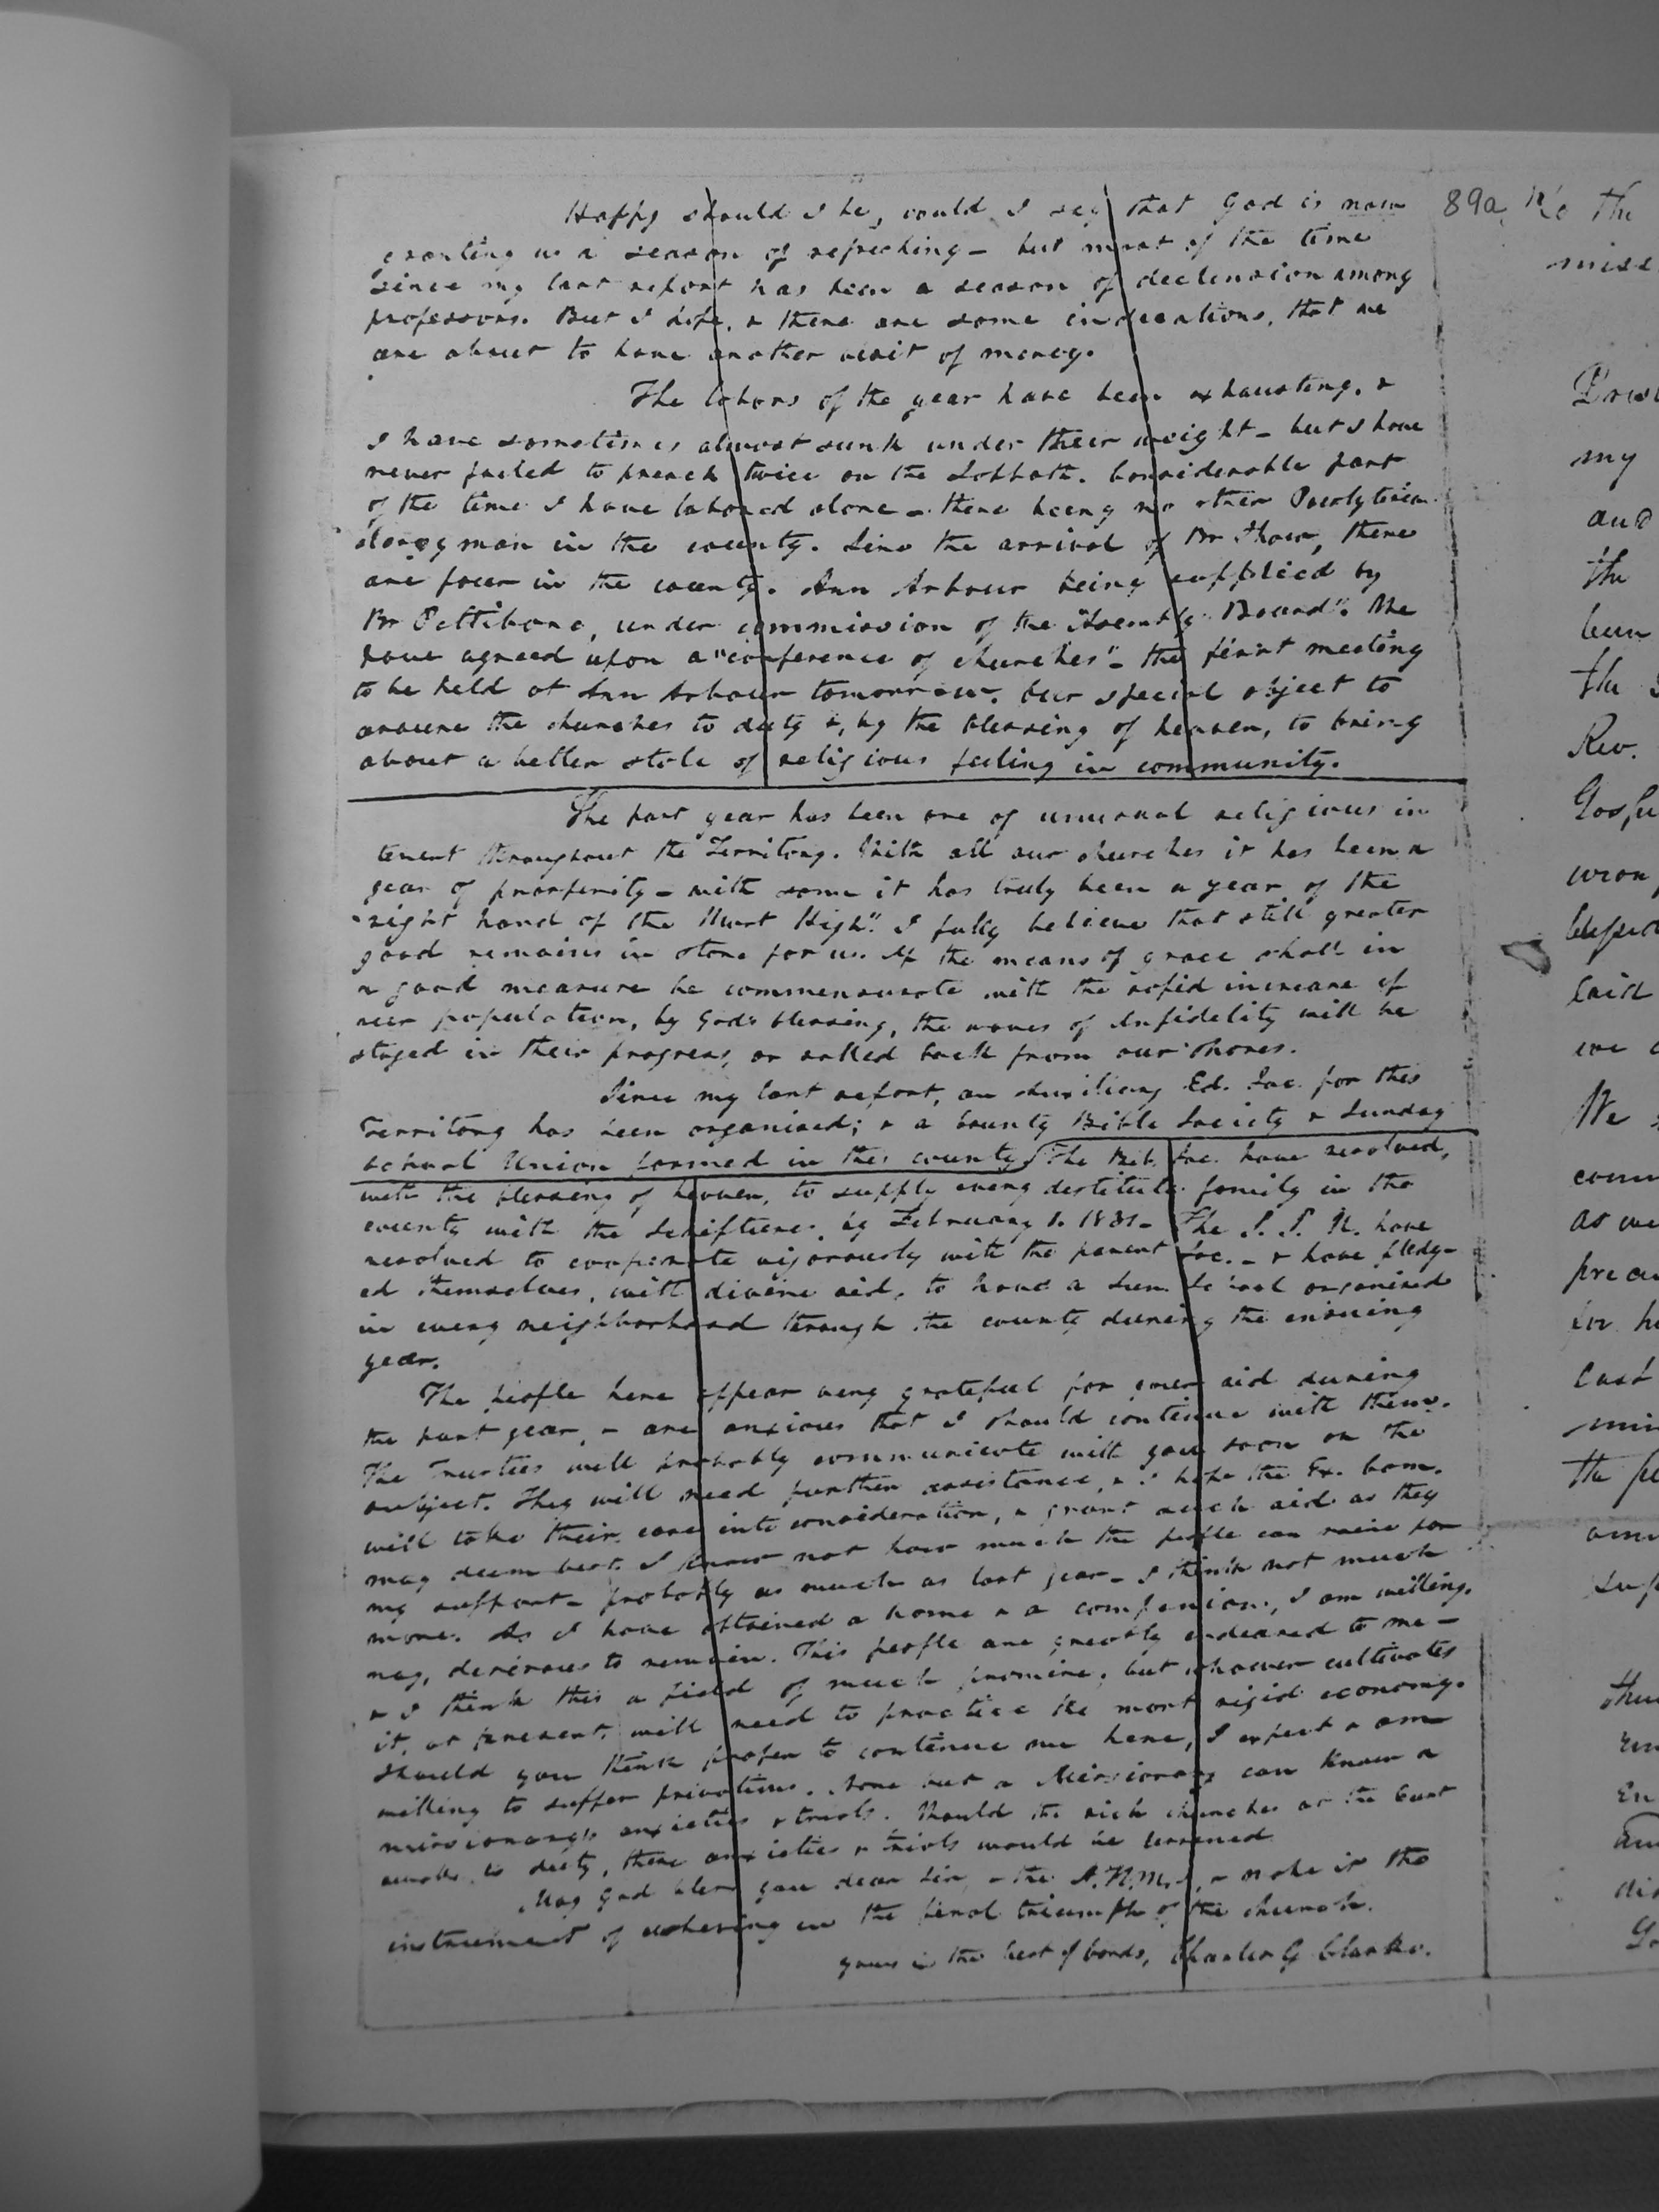 Happy should I be, could I say that God is now
granting us a season of refreshing - but most of the time
since my last report has been a season of declension among
professors. But I hope, & there are some indications, that we
are about to have another visit of mercy.
The labors of the year have been exhausting, &
I have sometimes almost sunk under their weight - but I have
never failed to preach twice on the Sabbath. Considerable part
of the time I have labored alone - there being no other Presbyterian
clergyman in the county. Since the arrival of Br. there
are four in the county. Ann Arbour being supplied by
Br Pettibone, under commission of the "Assembly's Board". We
have agreed upon a "conference of churches" - the first meeting
to be held at Ann Arbour tomorrow. Our special object to
arouse the churches to duty &, by the blessing of heaven, to bring
about a better state of religious feeling in community.
The past year has been one of unusual religious in
terest throughout the Territory. With all our churches it has been a
year of prosperity - with some it has truly been a year of the
"right hand of the Most High". I fully believe that still greater
good remains in store for us. If the means of grace shall in
a good measure be commensurate with the rapid increase of
our population, by God's blessing, the waves of Infidelity will be
stayed in their progress, or rolled back from our shores.
Since my last report, an Auxiliary Ed. Soc. for this
Territory has been organised; & a County Bible Society & Sunday
School Union formed in this county. The Bib. Soc. have resolved,
with the blessing of heaven, to supply every destitute family in the
county with the Scriptures, by February 1. 1831 - The S. S. U. have
resolved to cooperate vigorously with the parent Soc. - & have pledg-
ed themselves, with divine aid, to have a Sun. School organised
in every neighborhood through the county during the ensuing
year.
The people here appear very grateful for your aid during
the past year, & are anxious that I should continue with them.
The Trustees will probably communicate with you soon on the
subject. They will need further assistance, & I hope the Ex. Com.
will take their case into consideration, & grant such aid as they
may deem best. I know not how much the people can raise for
my support - probably as much as last year - I think not much
more. As I have obtained a home & a companion, I am willing,
nay, desirous to remain. This people are greatly endeared to me -
& I think this a field of much promise, but whoever cultivates
it, at present, will need to practice the most rigid economy.
Should you think proper to continue me here, I expect & am
willing to suffer privations. None but a Missionary can know a
missionary's anxieties & trials. Should the rich churches at the East
awake to duty, these anxieties & trials would be lessened.
May God bless you dear Sir, & the A.H.M.S., & make it the
instrument of ushering in the final triumph of the church.
yours in the best of bonds, Charles G Clarke.
89a
We the
mise
my
and
the
been
the
Rev.
laid
We
as we
the